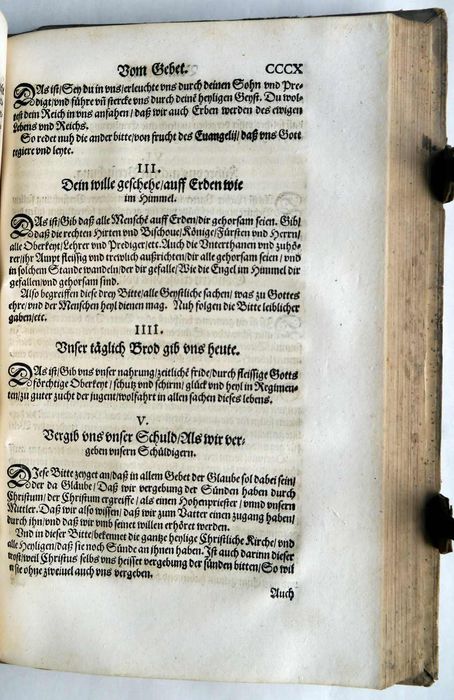 Vom Gebet. CCCX
DAs ist/Sey du in vns/erleuchte vns durch deinen Sohn vnd Pre-
digt/vnd führe vñ stercke vns durch deinē heyligen Geyst. Du wol-
lest dein Reich in vns anfahen/daß wir auch Erben werden des ewigen
Lebens vnd Reichs.
So redet nuh die ander bitte/von frucht des Euangelij/daß vns Gott
regiere vnd leyte.
III.
Dein wille geschehe/auff Erden wie
im Himmel.
DAs ist/Gib daß alle Menschē auff Erden/dir gehorsam seien. Gib/
daß die rechten Hirten vnd Bischoue/Könige/Fürsten vnd Herrn/
alle Oberkeyt/Lehrer vnd Prediger/etc. Auch die Vnterthanen vnd zuhö-
rer/jhr Ampt fleissig vnd trewlich außrichten/dir alle gehorsam seien/vnd
in solchem Stande wandeln/der dir gefalle/Wie die Engel im Himmel dir
gefallen/vnd gehorsam sind.
Also begreiffen diese drey Bitte/alle Geystliche sachen/was zu Gottes
ehre/vnd der Menschen heyl dienen mag. Nuh folgen die Bitte leiblicher
gaben/etc.
IIII.
Vnser täglich Brod gib vns heute.
DAs ist/Gib vns vnser nahrung/zeitlichē fride/durch fleissige Gotts
förchtige Oberkeyt/schutz vnd schirm/glück vnd heyl in Regimen-
ten/zu guter zucht der jugent/wolfahrt in allen sachen dieses lebens.
V.
Vergib vns vnser Schuld/Als wir ver-
geben vnsern Schüldigern.
DIese Bitte zeyget an/daß in allem Gebet der Glaube sol dabei sein/
Der da Gläube/Daß wir vergebung der Sünden haben durch
Christum/der Christum ergreiffe/als einen Hohenpriester/vnnd vnsern
Mittler. Daß wir also wissen/daß wir zum Vatter einen zugang haben/
durch ihn/vnd daß wir vmb seinet willen erhöret werden.
Vnd in dieser Bitte/bekennet die gantze heylige Christliche Kirche/vnd
alle Heyligen/daß sie noch Sünde an ihnen haben. Ist auch darinn dieser
trost/weil Christus selbs vns heisset vergebung der sünden bitten/So wil
sie ohne zweiuel auch vns vergeben.
Auch